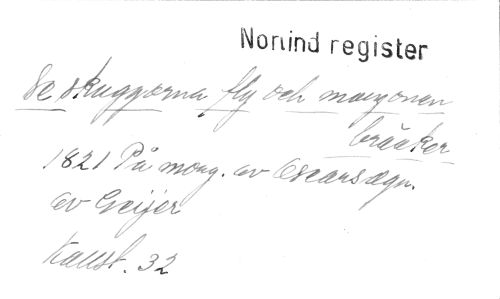 Norlind register
Se skuggorna fly och morgonen
bräcker
1821 På morg. av Oscarsdagen.
av Geijer
Kallst. 32